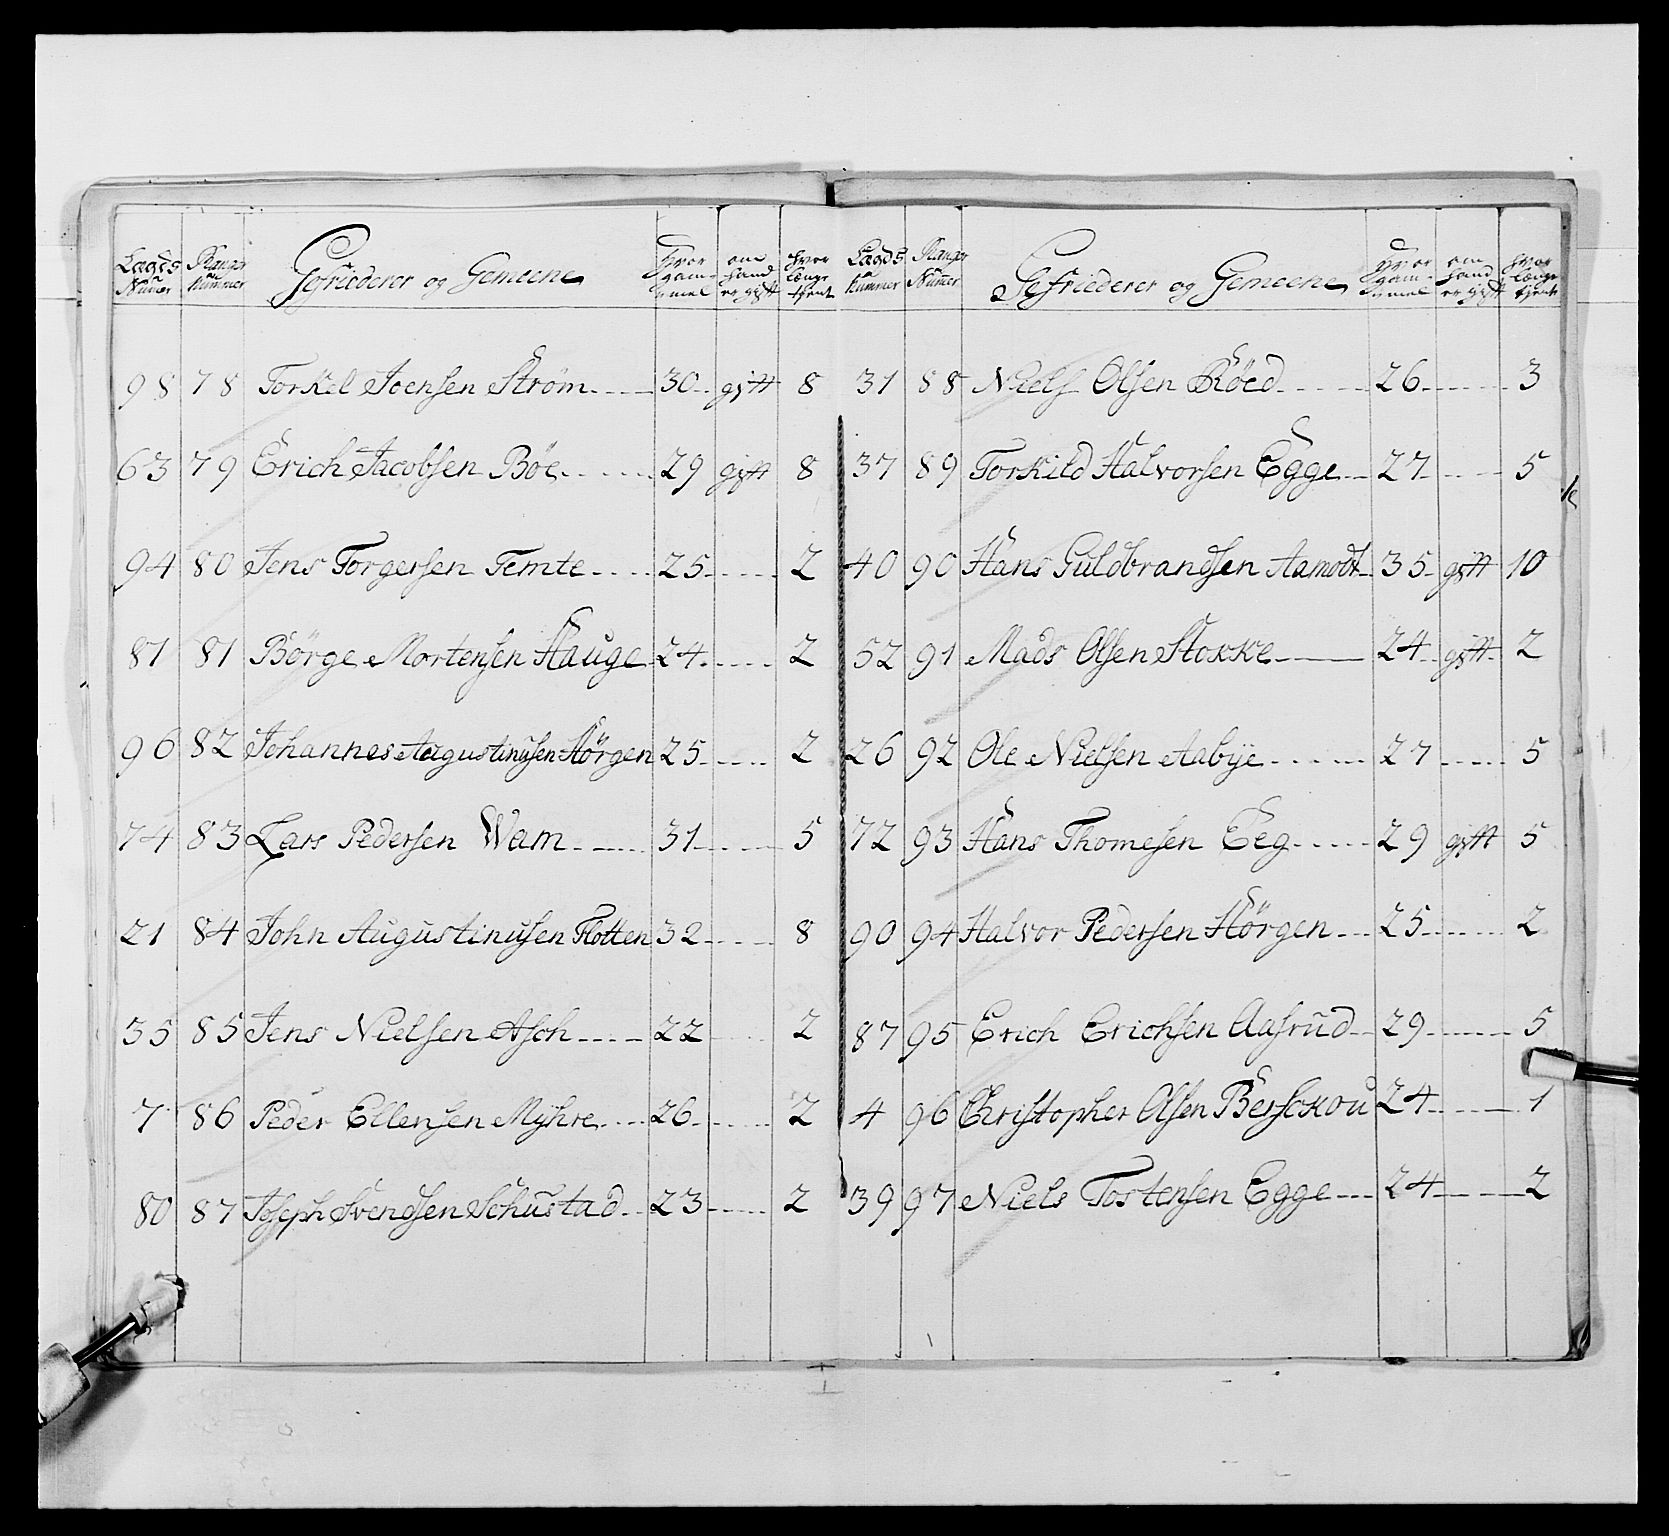 Lægds Nummer Range Nummer Gefriederer og Gemeene hvor gammel om hand er gift hvor længe tjent
98 78 Torkel Joensen Strøm 30 gift 8
63 79 Erich Jacobsen Böe 29 gift 8
94 80 Jens Torgersen Temte 25 2
81 81 Börge Mortensen Hauge 24 2
96 82 Johannes Augustinusen Hörgen 25 2
74 83 Lars Pedersen Wam 31 5
21 84 John Augustinusen Flotten 32 8
35 85 Jens Nielsen Asch 22 2
7 86 Peder Ellensen Myhre 26 2
80 87 Joseph Svendsen Schustad 23 2
Lægds Nummer Range Nummer Gefriederer og Gemeene hvor gammel om hand er gift hvor længe tjent
31 88 Niels Olsen Röed 26 3
37 89 Torkild Halvorsen Egge 27 5
40 90 Hans Guldbrandsen Aamodt 35 gift 10
52 91 Mads Olsen Stokke 24 gift 2
26 92 Ole Nielsen Aabye 27 5
72 93 Hans Thomesen Eeg 29 gift 5
90 94 Halvor Pedersen Hörgen 25 2
87 95 Erich Erichsen Aasrud 29 5
4 96 Christopher Olsen Berschou 24 1
39 97 Niels Tostensen Egge 24 2